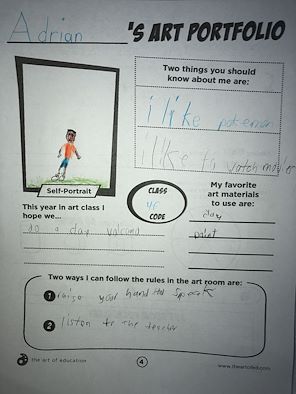 Adrian 'S ART PORTFOLIO
Two things you should
know about me are:
i like pokemon
i like to watch
Self-Portrait
This year in art class I
hope we...
do a clay volcano
CLASS
CODE
My favorite
art materials
to use are:
clay
paint
Two ways I can follow the rules in the art room are:
1 raise your hand to speak
2 listen to the teacher
the art of education
4
www.theartofed.com